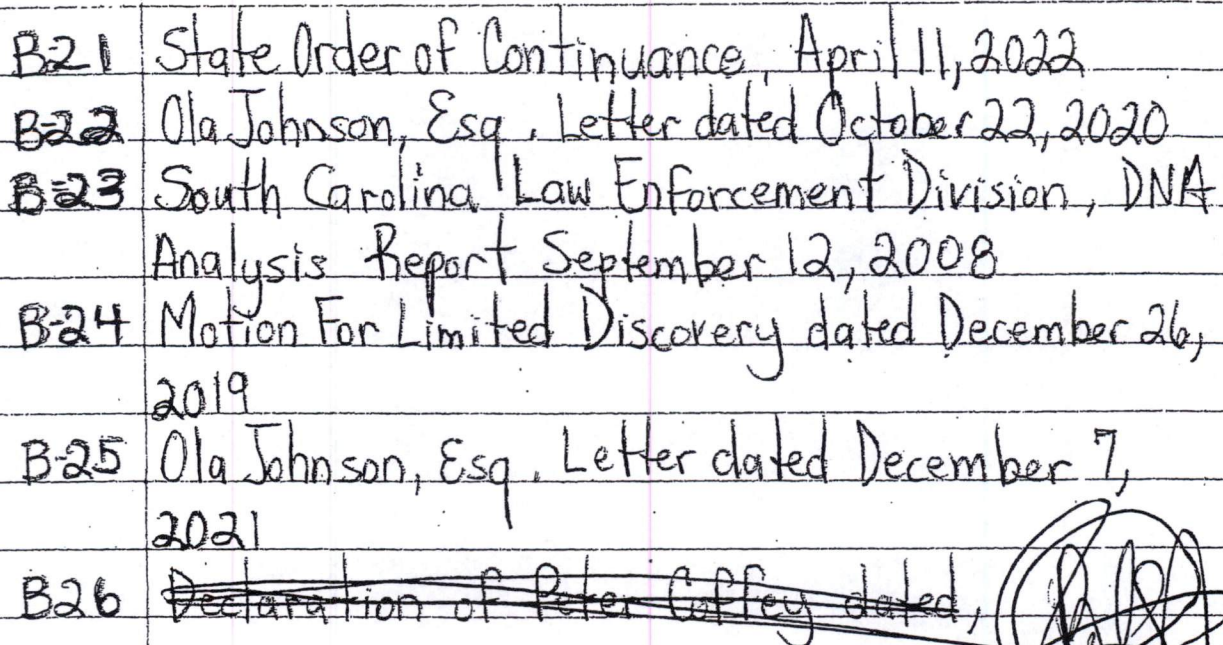 B-21 State Order of Continuance, April 11, 2022
B-22 Ola Johnson, Esq. Letter dated October 22, 2020
B-23 South Carolina Law Enforcement Division, DNA
Analysis Report September 12, 2008
B-24 Motion For Limited Discovery dated December 26,
2019
B-25 Ola Johnson, Esq. Letter dated December 7,
2021
B26 Declaration of Peter Coffey dated,